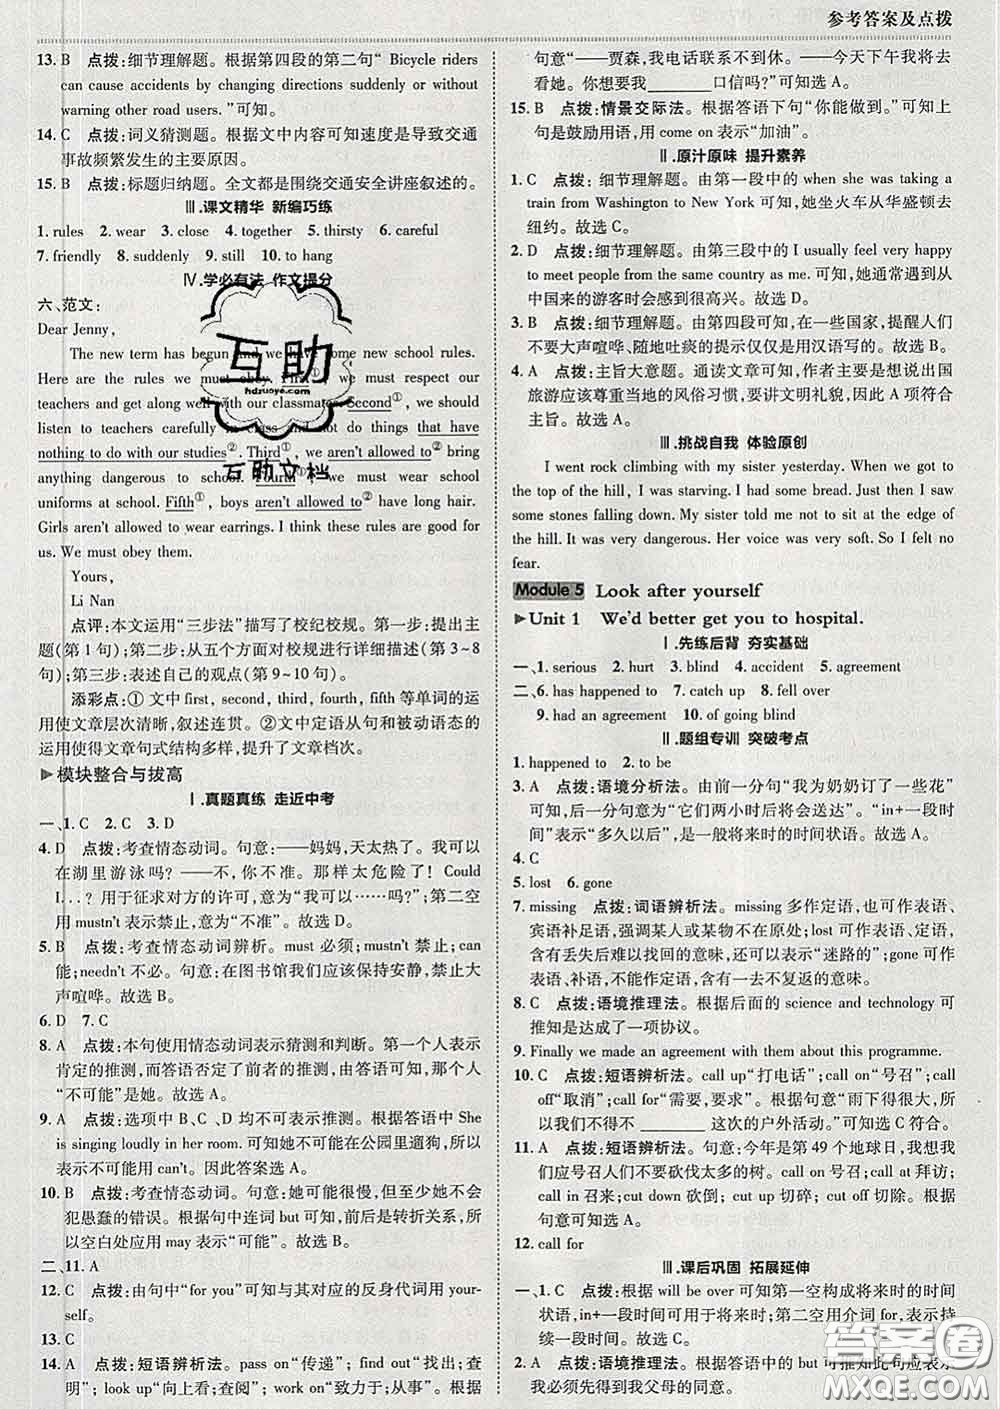 参考答案及点拨
13. B　点拨:细节理解题。根据第四段的第二句“ Bicycle riders
can cause accidents by changing directions suddenly or without
warning other road users. ”可知。
14. C　点拨:词义猜测题。根据文中内容可知速度是导致交通
事故频繁发生的主要原因。
15. B　点拨:标题归纳题。全文都是围绕交通安全讲座叙述的。
Ⅲ.课文精华 新编巧练
1. rules　2. wear　3. close　4. together　5. thirsty　6. careful
7. friendly　8. suddenly　9. still　10. to hang
Ⅳ.学必有法 作文提分
六、范文:
Dear Jenny,
The new term has begun and we have some new school rules.
Here are the rules we must obey. First①, we must respect our
teachers and get along well with our classmates. Second①, we should
listen to teachers carefully in class and not do things that have
nothing to do with our studies②. Third①, we aren't allowed to② bring
anything dangerous to school. Fourth①, we must wear school
uniforms at school. Fifth①, boys aren't allowed to② have long hair.
Girls aren't allowed to wear earrings. I think these rules are good for
us. We must obey them.
Yours,
Li Nan
点评:本文运用“三步法”描写了校纪校规。第一步:提出主
题(第 1 句);第二步:从五个方面对校规进行详细描述(第 3~8
句);第三步:表述自己的观点(第 9~10 句)。
添彩点:①文中first, second, third, fourth, fifth 等单词的运
用使文章层次清晰,叙述连贯。②文中定语从句和被动语态的
运用使得文章句式结构多样,提升了文章档次。
模块整合与拔高
Ⅰ.真题真练 走近中考
一、1. C　2. C　3. D
4. D　点拨:考查情态动词。句意:——妈妈,天太热了。我可以
在湖里游泳吗？——不,你不准。那样太危险了！Could
I…？用于征求对方的许可,意为“我可以……吗?”;第二空
用 mustn't 表示禁止,意为“不准”。故选 D。
5. B　点拨:考查情态动词辨析。must 必须;mustn't 禁止;can
能;needn't 不必。句意:在图书馆我们应该保持安静,禁止大
声喧哗。故选 B。
6. D　7. C
8. A　点拨:本句使用情态动词表示猜测和判断。第一个人表示
肯定的推测,而答语否定了前者的推测,由答语可知,她“不
“不可能”是她。故选 A。
9. A　点拨:选项中 B、C、D 均不可表示推测。根据答语中She
is singing loudly in her room. 可知她不可能在公园里遛狗,所以
表示不可能用 can't。因此答案选 A。
10. B　点拨:考查情态动词。句意:她可能很慢,但至少不会
犯愚蠢的错误。根据句中连词 but 可知,前后是转折关系,所
以空白处应用 may 表示“可能”。故选 B。
二、11. A
12. C　点拨:由句中“for you”可知与其对应的反身代词用your-
self。
13. C
14. A　点拨:短语辨析法。pass on“传递”;find out“找出;查
明”;look up“向上看;查阅”;work on“致力于;从事”。根据
句意“——贾森,我电话联系不到休。——今天下午我将去
看她。你想要我______口信吗?”可知选 A。
15. B　点拨:情景交际法。根据答语下句“你能做到。”可知上
句是鼓励用语,用 come on 表示“加油”。
Ⅱ.原汁原味 提升素养
1. C　点拨:细节理解题。由第一段中的 when she was taking a
train from Washington to New York 可知,她坐火车从华盛顿去
纽约。故选 C。
2. D　点拨:细节理解题。由第三段中的 I usually feel very happy
to meet people from the same country as me. 可知,她通常遇到从
中国来的游客时会感到很高兴。故选 D。
3. B　点拨:细节理解题。由第四段可知,在一些国家,提醒人们
不要大声喧哗、随地吐痰的提示仅仅是用汉语写的。故选 B。
4. A　点拨:主旨大意题。通读文章可知,作者主要是想说出国
旅游应该尊重当地的风俗习惯,要讲文明礼貌,因此 A 项符合
主旨。故选 A。
Ⅲ.挑战自我 体验原创
I went rock climbing with my sister yesterday. When we got to
the top of the hill, I was starving. I had some bread. Just then I saw
some stones falling down. My sister told me not to sit at the edge of
the hill. It was very dangerous. Her voice was very soft. So I felt no
fear.
Module 5　Look after yourself
Unit 1　We'd better get you to hospital.
Ⅰ.先练后背 夯实基础
一、1. serious　2. hurt　3. blind　4. accident　5. agreement
二、6. has happened to　7. catch up　8. fell over
9. had an agreement　10. of going blind
Ⅱ.题组专训 突破考点
1. happened to　2. to be
3. A　点拨:语境分析法。由前一分句“我为奶奶订了一些花”
可知,后一分句意为“它们两小时后将会送达”。“in+一段时
间”表示“多久以后”,是一般将来时的时间状语。故选 A。
4. C
5. lost　6. gone
7. missing　点拨:词语辨析法。missing 多作定语,也可作表语、
宾语补足语,强调某人或某物不在原处;lost 可作表语、定语,
含有丢失后难以找回的意味,还可表示“迷路的”;gone 可作
表语、补语,不能作定语,含有一去不复返的意味。
8. C　点拨:语境推理法。根据后面的 science and technology 可
推知是达成了一项协议。
9. Finally we made an agreement with them about this programme.
10. C　点拨:短语辨析法。call up“打电话”;call on“号召”;call
off“取消”;call for“需要,要求”。根据句意“雨下得很大,所
以我们不得不______这次的户外活动。”可知选C符合。
11. A　点拨:短语辨析法。句意:今年是第 49 个地球日,我想我
们应号召人们不要砍伐太多的树。call on 号召;call at 拜访;
call in 召来;cut down 砍倒;cut up 切碎;cut off 切除。根据
句意可知选 A。
12. call for
Ⅲ.课后巩固 拓展延伸
一、1. C　点拨:根据 will be over 可知第一空构成将来时的时间
状语,in+一段时间可用于将来时;第二空用介词 for,表示
持续一段时间。故选 C。
2. A　点拨:语境推理法。根据答语中的 but 可推知此句应表示
我必须先得到我父母的同意。
互助
hdzuoye.com
互助文档
答案圈
MXQE.COM